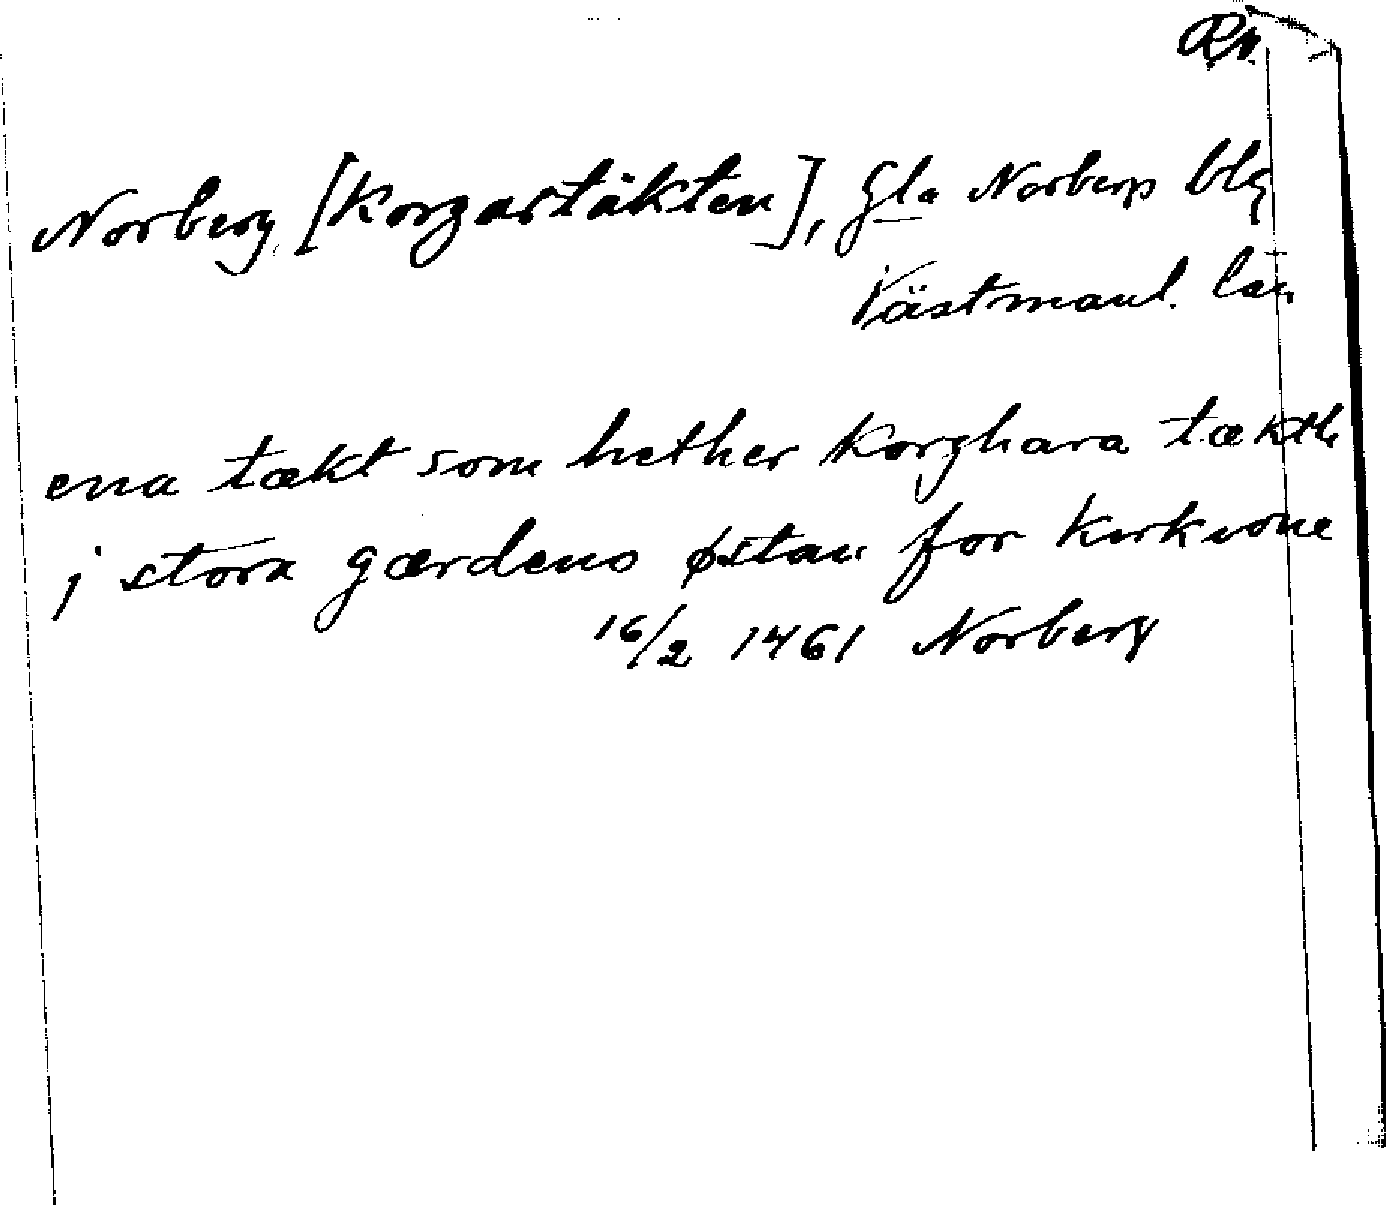 Norberg [Korgartäkten], Gla Norbergs blg
Västmanl. län
ena tækt som hether Korghara tækth
j stora gærdeno østan for kirkione
16/2 1461 Norberg